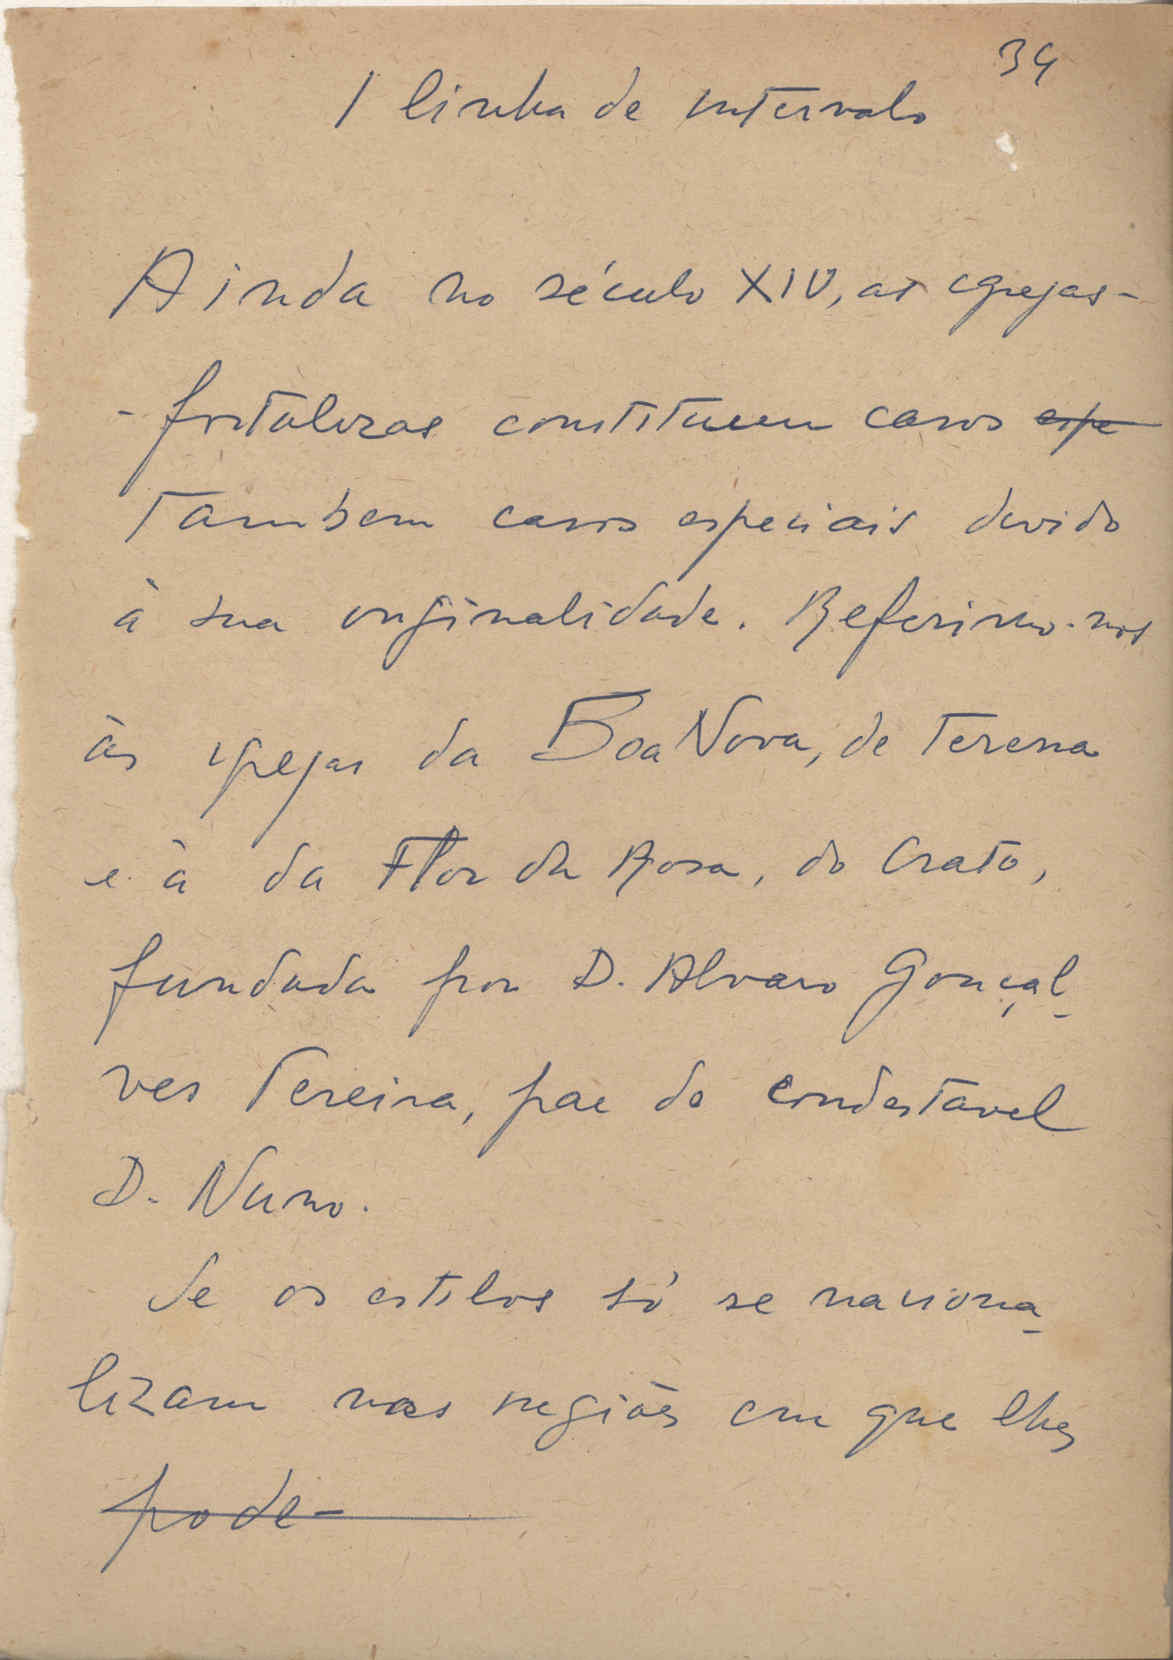 34
1 linha de intervalo
Ainda no século XIV, as egrejas-
-fortalezas constituem casos espe
tambem casos especiais devido
à sua originalidade. Referimo-nos
às igrejas da Boa Nova, de Terena
e à da Flor da Rosa, do Crato,
fundada por D. Alvaro Gonçal-
ves Pereira, pae do condestavel
D. Nuno.
Se os estilos só se naciona-
lizam nas regiões em que lhes
pode-